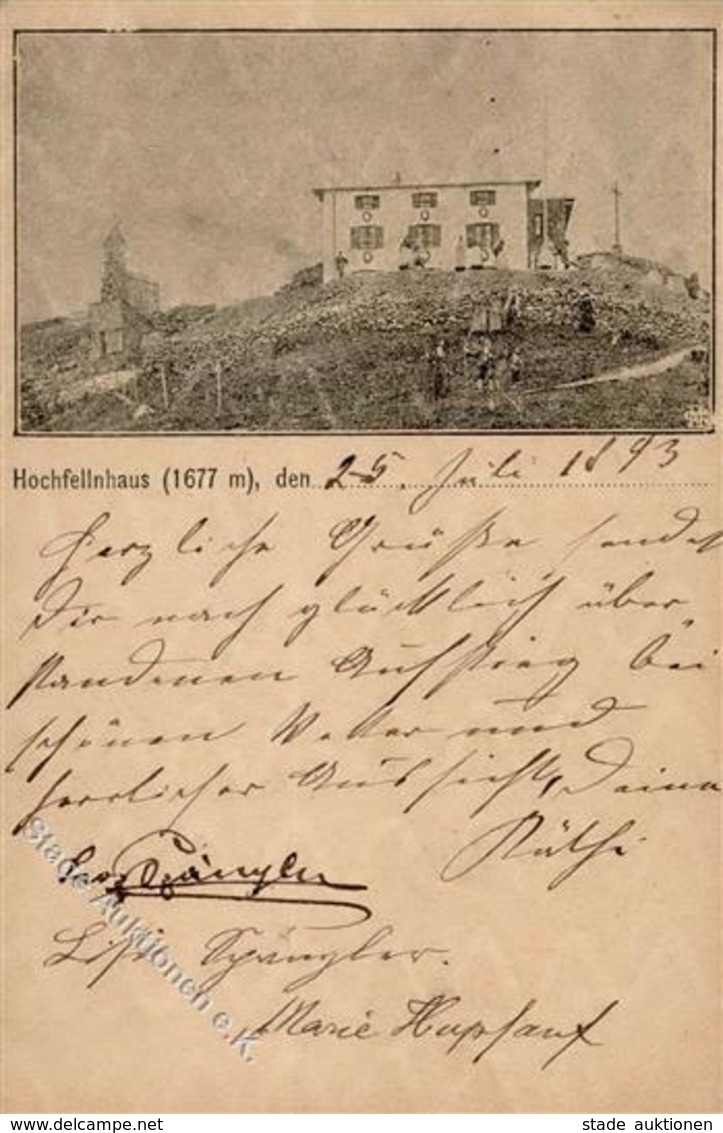 Hochfellnhaus (1677 m), den 25. Juli 1893
Herzliche Grüße sendet
Dir nach glücklich über
standenen Aufstieg bei
schönen Wetter und
herrlicher Aussicht, Deine
Käthi
Spängler
Lisi Spängler.
Marie Hupfauf
Stade Auktionen e.K.
stade auktionen